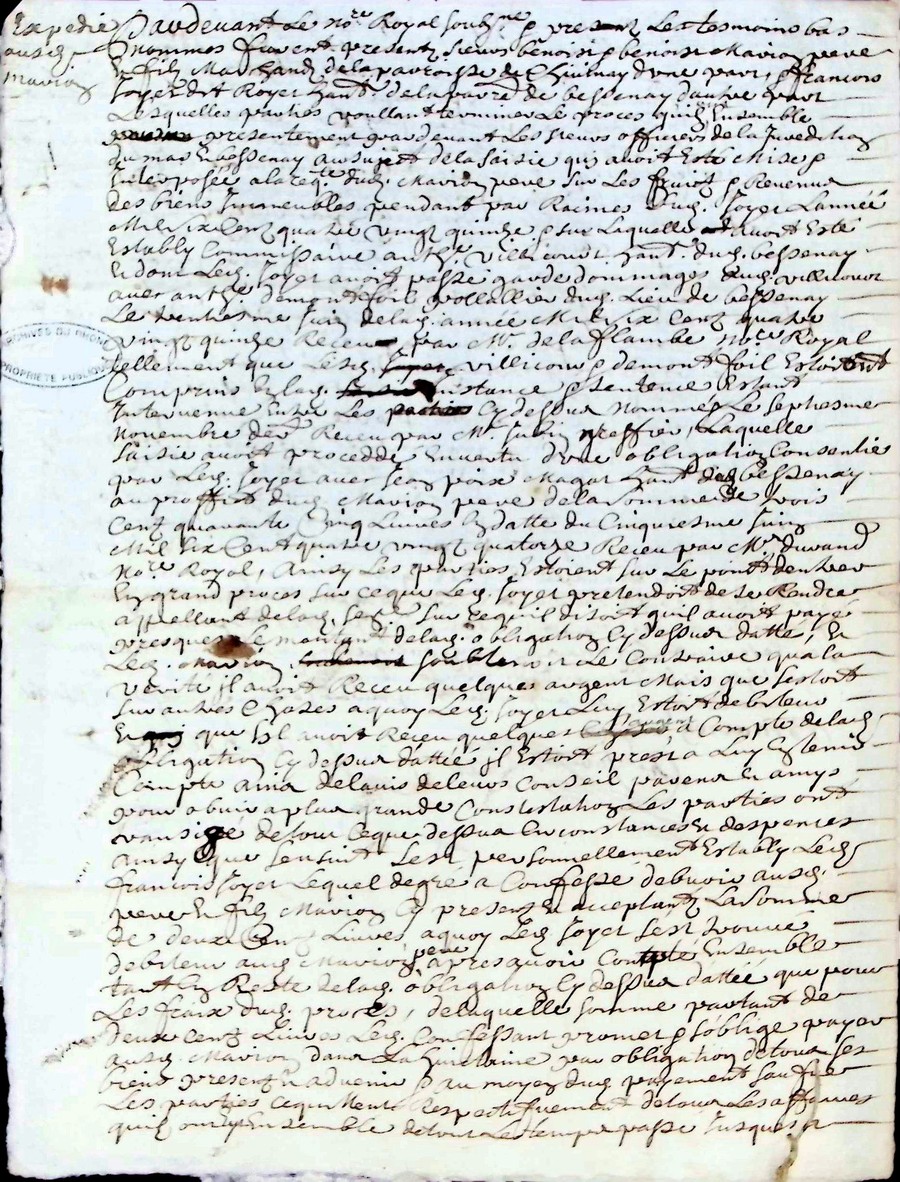 Expedié
ausd.
Mavion
Pardevant Le No.re Royal soubs.né & presentz Les tesmoins bas
nommes furent presentz sieurs benoist & benoist Mavion pere
& filz Marchandz de la parroisse de Chivinay d'une part, & francois
soyer dit Royer habt. de la parr.e de bessenay d'autre part
Lesquelles parties voullant terminer Le proces quilz Ensemble
presentement pardevant Les sieurs officiers de la Juredition
du mas & bessenay au sujet de la saisie qui avoit Esté Mise &
Interposée a la req.te dud. Mavion pere sur Les fruictz & Revenus
des biens Immeubles pendant par Racines dud. soyer L'année
Mil six Centz quatre vingt quinze & sur Laquelle avoit Esté
Estably Commissaire anth.e villicour habt. dud. bessenay
& dont Led. soyer avoit passé garde dommages aud. villicour
avec anth.e demont foil dud. Lieu de bessenay
Le trentiesme Juin de lad. année Mil six Centz quatre
vingt quinze Receu par M.e de la flambe No.re Royal
tellement que Lesd. villicour & demont foil Estoient
Comprins En lad. Instance & sentence Estant
Intervenue Entre Les Cy dessus nommes Le septiesme
Novembre der. Receu par M.e greffier, Laquelle
saisie avoit proceddé En vertu d'une obligation Consentie
par Led. soyer avec Jean poix Magat habt. dud. bessenay
au proffit dud. Mavion pere de la somme de trois
Centz quarante Cinq Livres En datte du Cinquiesme Juin
Mil six Cent quatre vingt quatorze Receu par M.e durand
No.re Royal, Ainsy Les parties Estoient sur Le point d'entrer
En grand proces sur ce que Led. soyer pretendoit de se Rendre
appellant de lad. sent.e sur ce quil disoit quil avoit payé
presques Le montant de lad. obligation Cy dessus dattée, Et
Led. Mavion soubtenir Le Contraire qua la
verité Il avoit Receu quelques argent Mais que sestoit
sur autres Chozes a quoy Led. soyer Luy Estoit debiteur
Et que sil avoit Receu quelques a Compte de lad.
obligation Cy dessus dattée Il Estoit prest a Luy En tenir
Compte Ainsi de lavis de leurs Conseil parens & amys
pour obvier a plus grande Constestation Les parties ont
transigé de tout Ceque dessus Circonstances & despences
ainsy que s'ensuit s'est personnellement Estably Led.
francois soyer Lequel de gre a Confessé debvoir ausd.
pere & filz Mavion Cy presentz & acceptantz La somme
de deux Centz Livres, a quoy Led. soyer s'est trouvé
debiteur aud. Mavion pere apres avoir Compté Ensemble
tant En Reste de lad. obligation Cy dessus dattée que pour
Les fraix dud. proces, de laquelle somme partant de
deux centz Livres Led. Confessant promet & s'oblige payer
ausd. Mavion dans La huictaine par obligation de tous ses
biens presentz & advenir & au moyen dud. payement
Les parties Respectifvement de tous Les affaires
quilz ont Ensemble de tout Le temps passé Jusques a
ARCHIVES DU RHONE
PROPRIETE PUBLIQUE